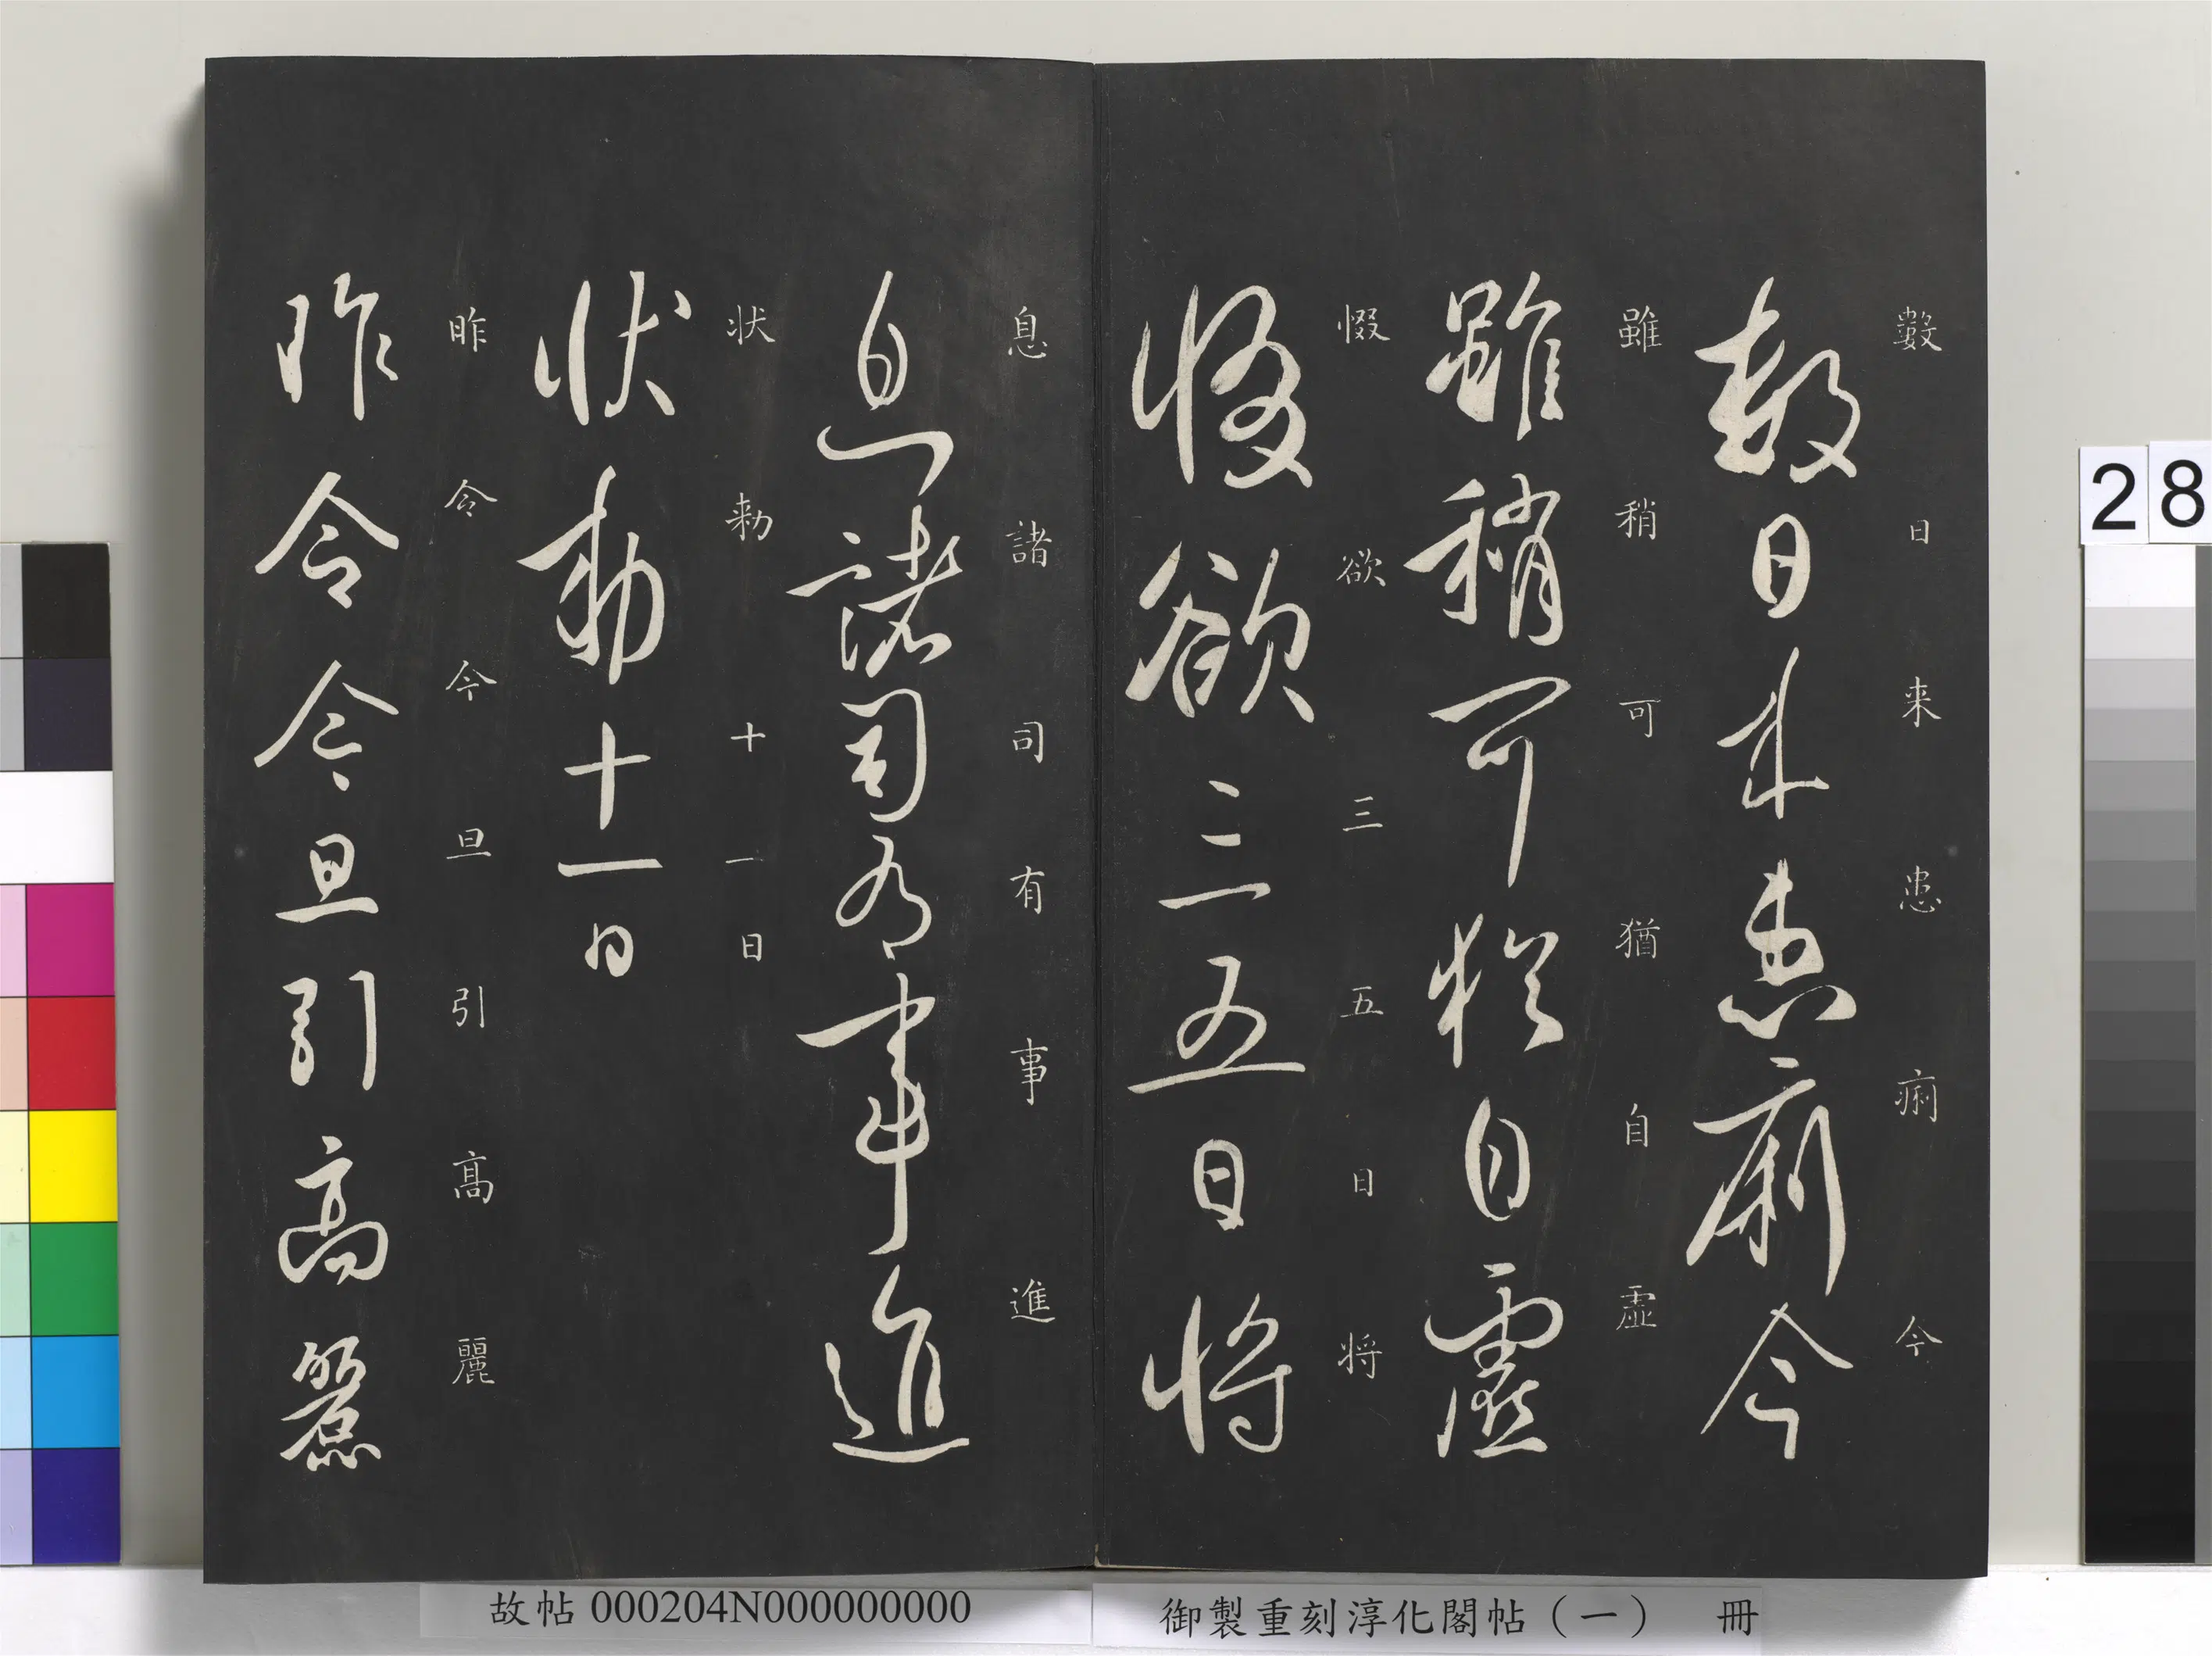 數日来患痢今
數日来患痢今
雖稍可猶自虛
雖稍可猶自虛
惙欲三五日将
惙欲三五日将
息諸司有事進
息諸司有事進
状勅十一日
状勅十一日
昨令今旦引高麗
昨令今旦引高麗
28
故帖 000204N000000000
御製重刻淳化閣帖（一） 冊